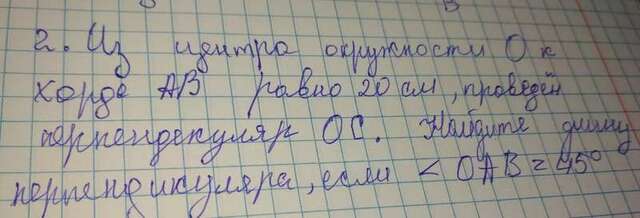 2. Из центра окружности О к
хорде АВ равно 20 см, проведён
перпендекуляр ОС. Найдите длину
перпендикуляра, если < ОАВ = 45°